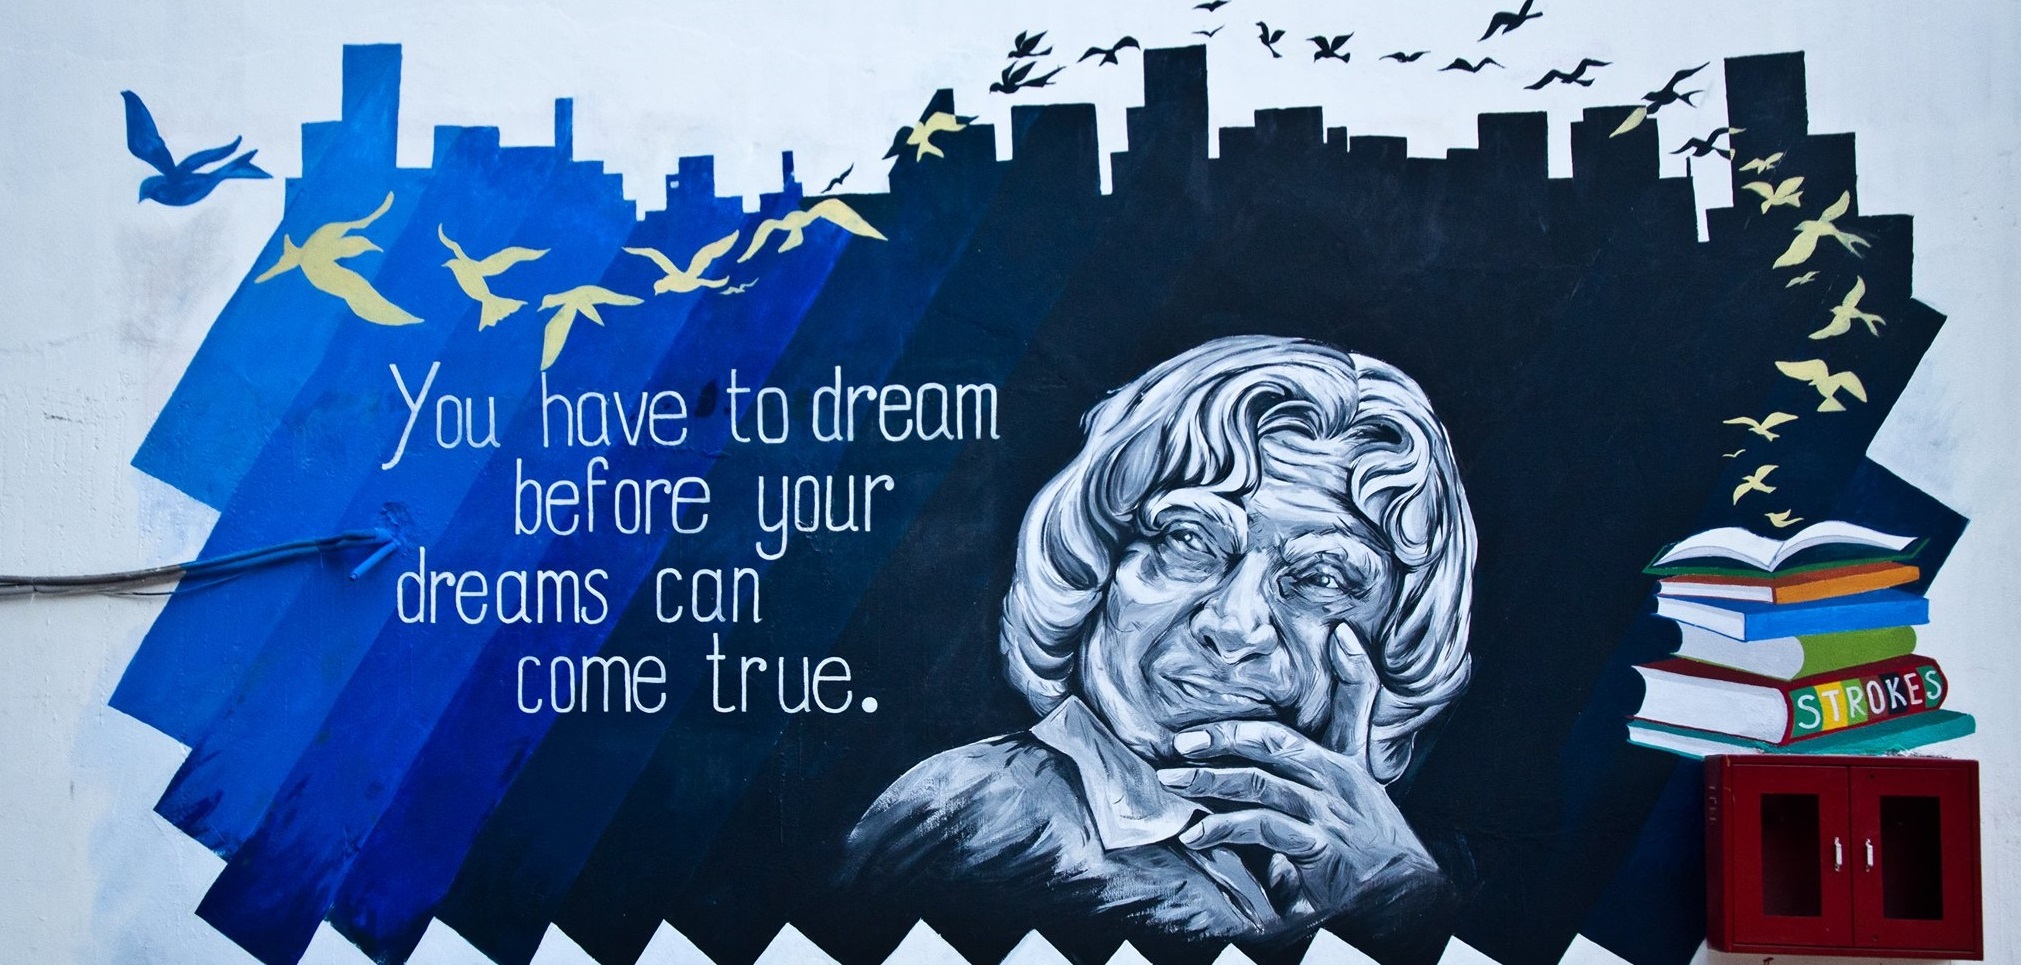 You have to dream
before your
dreams can
come true.
STROKES